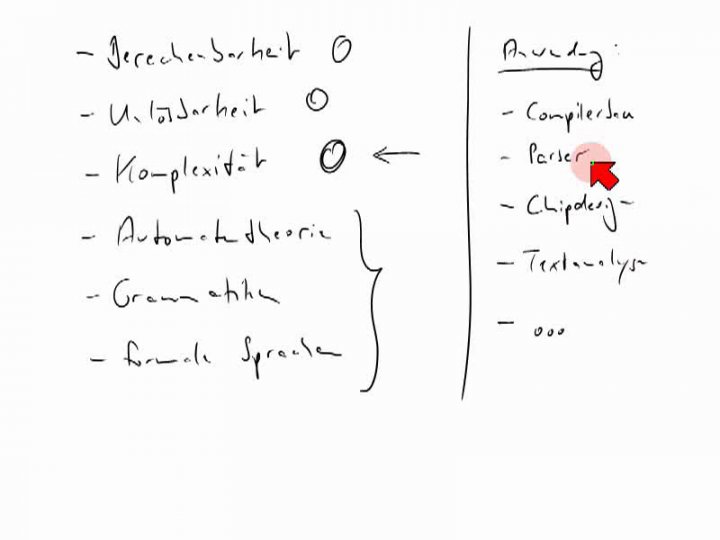 - Berechenbarkeit
- Unlösbarkeit
- Komplexität
- Automatentheorie
- Grammatiken
- formale Sprachen
Anwendung:
- Compilerbau
- Parser
- Chipdesign
- Textanalyse
- ...